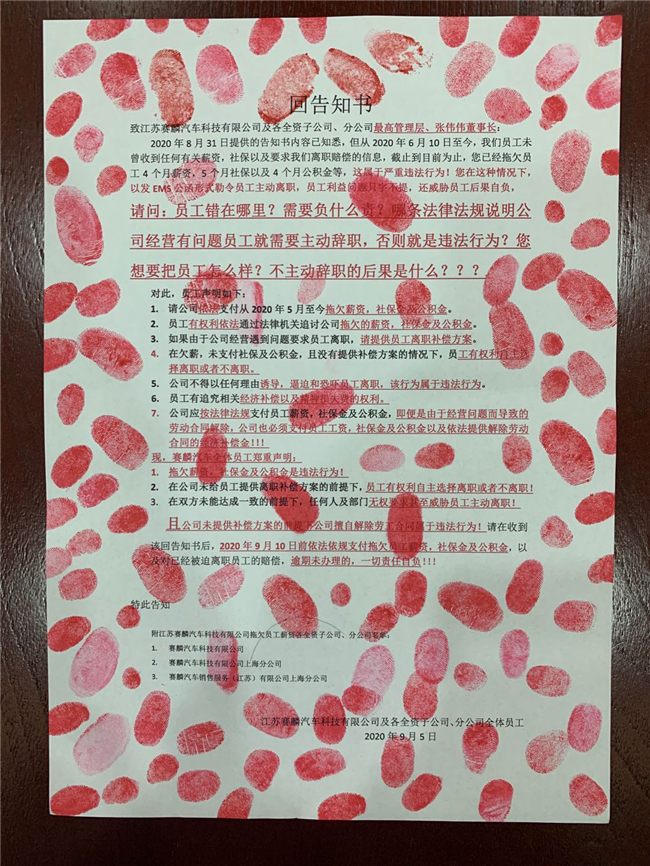 回告知书
致江苏赛麟汽车科技有限公司及各全资子公司、分公司最高管理层、张伟伟董事长：
2020年8月31日提供的告知书内容已知悉，但从2020年6月10日至今，我们员工未
曾收到任何有关薪资，社保以及要求我们离职赔偿的信息，截止到目前为止，您已经拖欠员
工4个月薪资，5个月社保以及4个月公积金等，这属于严重违法行为！您在这种情况下，
以发EMS公函形式勒令员工主动离职，员工利益问题只字不提，还威胁员工后果自负，
请问：员工错在哪里？需要负什么责？哪条法律法规说明公
司经营有问题员工就需要主动辞职，否则就是违法行为？您
想要把员工怎么样？不主动辞职的后果是什么？？？
对此，员工声明如下：
1. 请公司依法支付从2020年5月至今拖欠薪资，社保金及公积金。
2. 员工有权利依法通过法律机关追讨公司拖欠的薪资，社保金及公积金。
3. 如果由于公司经营遇到问题要求员工离职，请提供员工离职补偿方案。
4. 在欠薪，未支付社保及公积金，且没有提供补偿方案的情况下，员工有权利自主选
择离职或者不离职。
5. 公司不得以任何理由诱导，逼迫和恐吓员工离职，该行为属于违法行为。
6. 员工有追究相关经济补偿以及精神损失费的权利。
7. 公司应按法律法规支付员工薪资，社保金及公积金，即便是由于经营问题而导致的
劳动合同解除，公司也必须支付员工工资，社保金及公积金以及依法提供解除劳动
合同的经济补偿金！！！
现，赛麟汽车全体员工郑重声明：
1. 拖欠薪资，社保金及公积金是违法行为！
2. 在公司未给员工提供离职补偿方案的前提下，员工有权利自主选择离职或者不离职！
3. 在双方未能达成一致的前提下，任何人及部门无权要求甚至威胁员工主动离职！
且公司未提供补偿方案的前提下公司擅自解除劳工合同属于违法行为！请在收到
该回告知书后，2020年9月10日前依法依规支付拖欠员工薪资，社保金及公积金，以
及对已经被迫离职员工的赔偿，逾期未办理的，一切责任自负！！！
特此告知
附江苏赛麟汽车科技有限公司拖欠员工薪资各全资子公司、分公司名单：
1. 赛麟汽车科技有限公司
2. 赛麟汽车科技有限公司上海分公司
3. 赛麟汽车销售服务（江苏）有限公司上海分公司
江苏赛麟汽车科技有限公司及各全资子公司、分公司全体员工
2020年9月5日